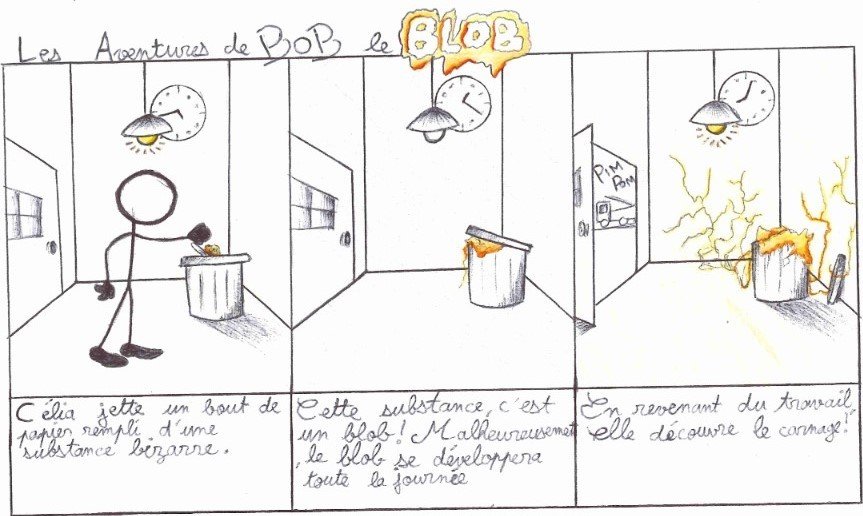 Les Aventures de BOB le BLOB
PIM
POM
Célia jette un bout de
papier rempli d'une
substance bizarre.
Cette substance, c'est
un blob! Malheureusement
, le blob se développera
toute la journée
En revenant du travail,
elle découvre le carnage!